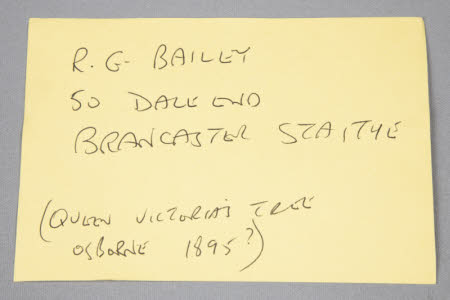 R. G. BAILEY
50 DALE END
BRANCASTER STAITHE
(QUEEN VICTORIA'S TREE
OSBORNE 1895?)